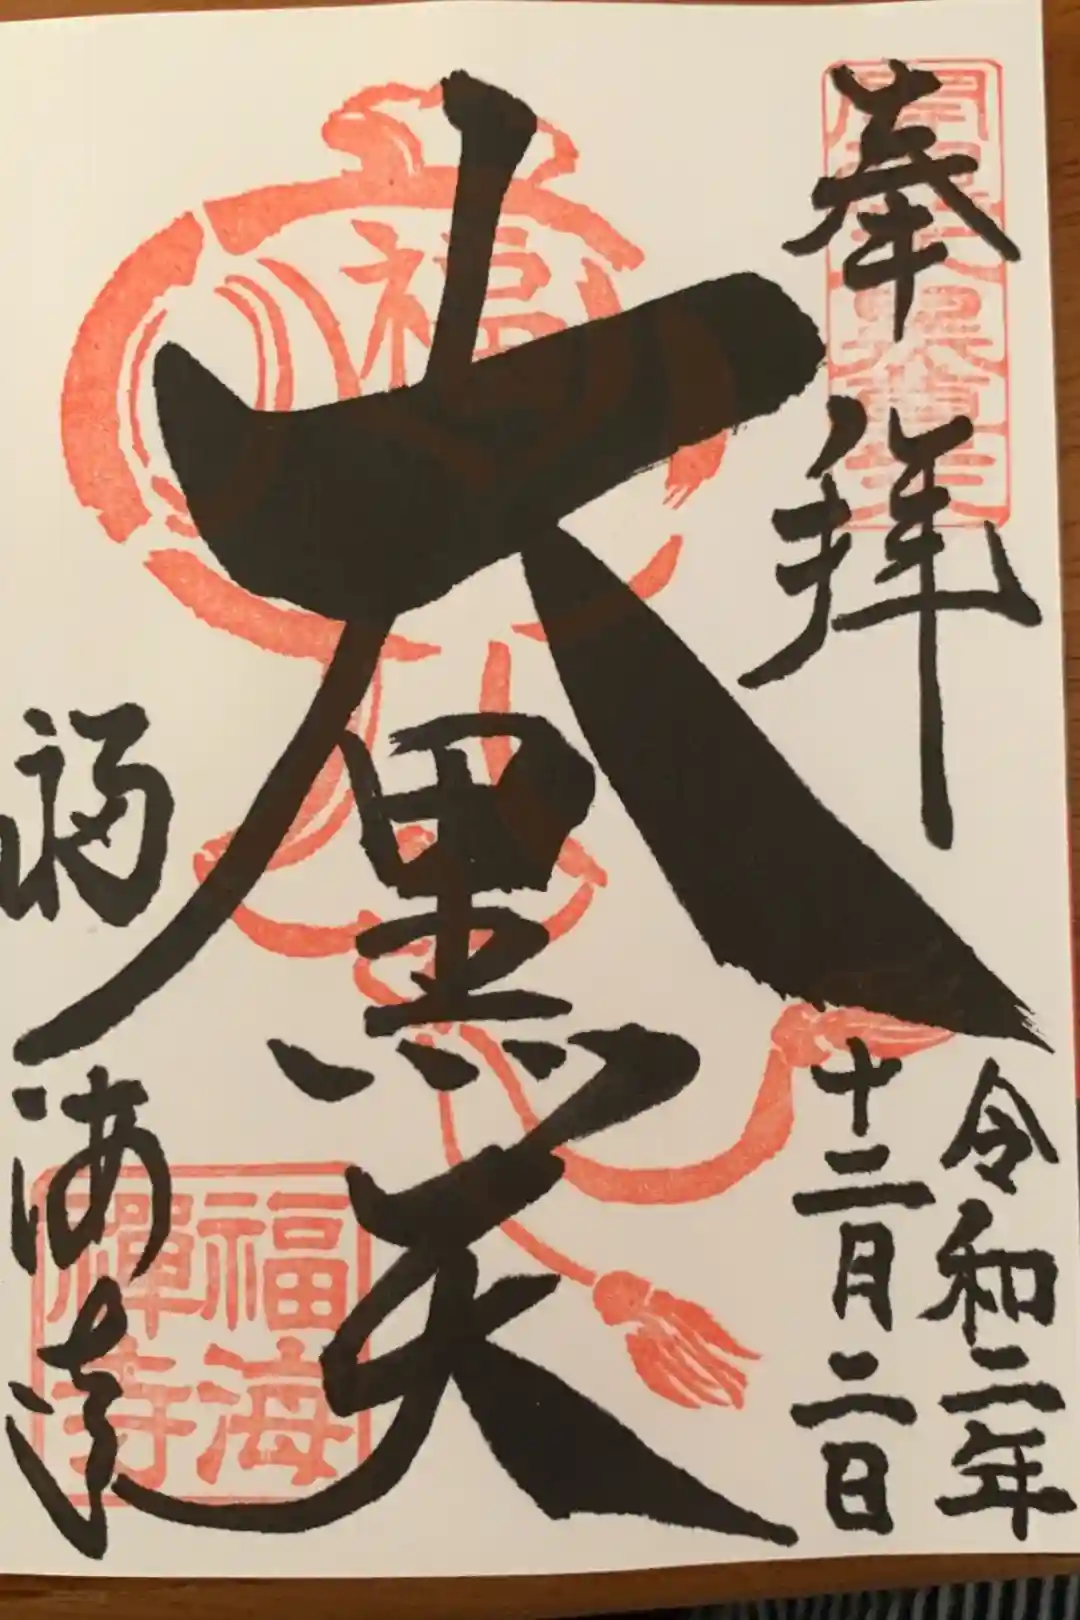 奉拝
令和二年
十二月二日
大黒天
福
福海寺
福海
禅寺